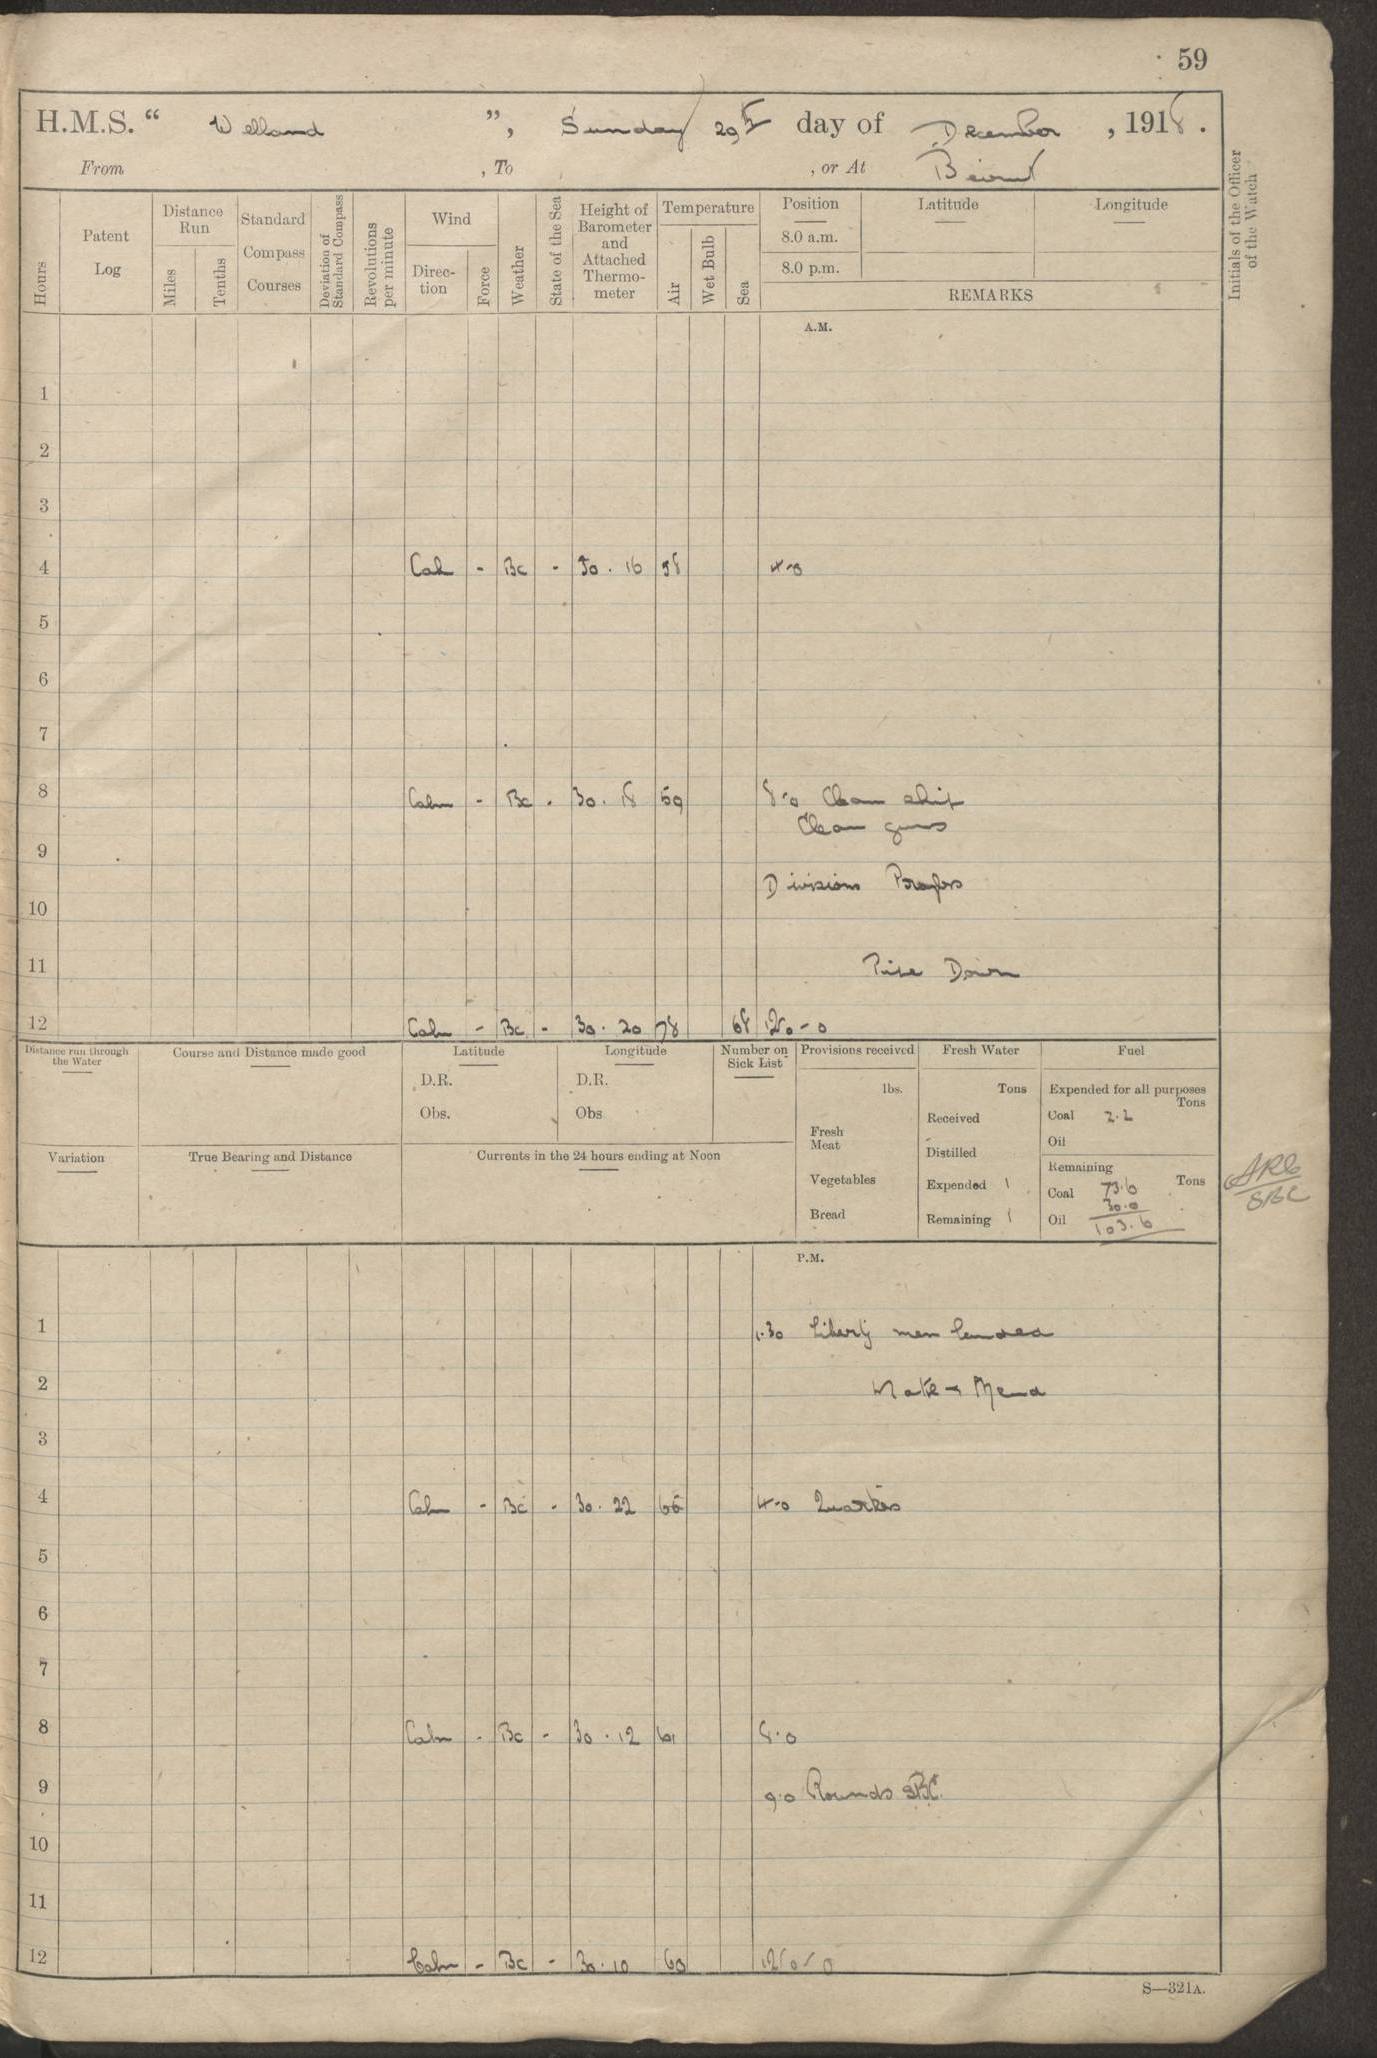 59
H.M.S. “ Welland ”, Sunday 29th day of December , 1918 .
From , To , or At Beirut
Hours
Patent Log
Distance Run
Miles
Tenths
Standard Compass Courses
Deviation of Standard Compass
Revolutions per minute
Wind
Direc-tion
Force
Weather
State of the Sea
Height of Barometer and Attached Thermo-meter
Temperature
Air
Wet Bulb
Sea
Position
8.0 a.m.
8.0 p.m.
Latitude
Longitude
REMARKS
Initials of the Officer of the Watch
A.M.
1
2
3
4 Calm - Bc - 30.16 58 4-0
5
6
7
8 Calm - Bc - 30.18 59 8-0 Clean ship
Clean guns
9
Divisions Prayers
10
11 Pipe Down
12 Calm - Bc - 30.20 78 68 12-0
Distance run through the Water
Course and Distance made good
Latitude
D.R.
Obs.
Longitude
D.R.
Obs
Number on Sick List
Provisions received
lbs.
Fresh Meat
Vegetables
Bread
Fresh Water
Tons
Received
Distilled
Expended 1
Remaining
Fuel
Expended for all purposes
Tons
Coal 2.2
Oil
Remaining
Coal 73.6 Tons
30.0
Oil 103.6
Variation
True Bearing and Distance
Currents in the 24 hours ending at Noon
SBC
P.M.
1 1.30 Liberty men landed
2 Make & Mend
3
4 Calm - Bc - 30.22 66 4-0 Quarters
5
6
7
8 Calm - Bc - 30.12 61 8.0
9 9.0 Rounds SBC
10
11
12 Calm - Bc - 30.10 60 12-0
S—321A.